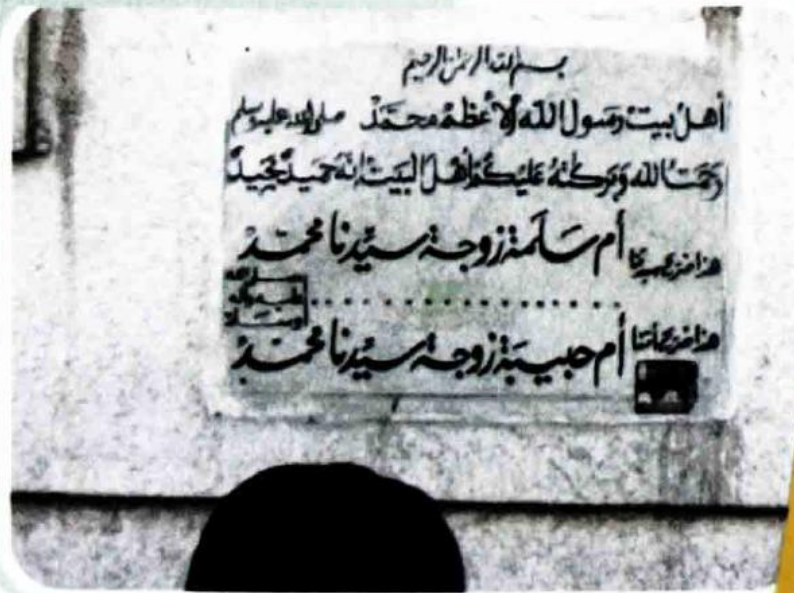 بسم الله الرحمن الرحيم
أهل بيت رسول الله الأعظم محمد صلى الله عليه وسلم
رحمت الله وبركته عليكم أهل البيت إنه حميد مجيد
هذا ضريح أم سلمة زوجة سيدنا محمد
صلى الله عليه وآله وسلم
هذا ضريح أم حبيبة زوجة سيدنا محمد